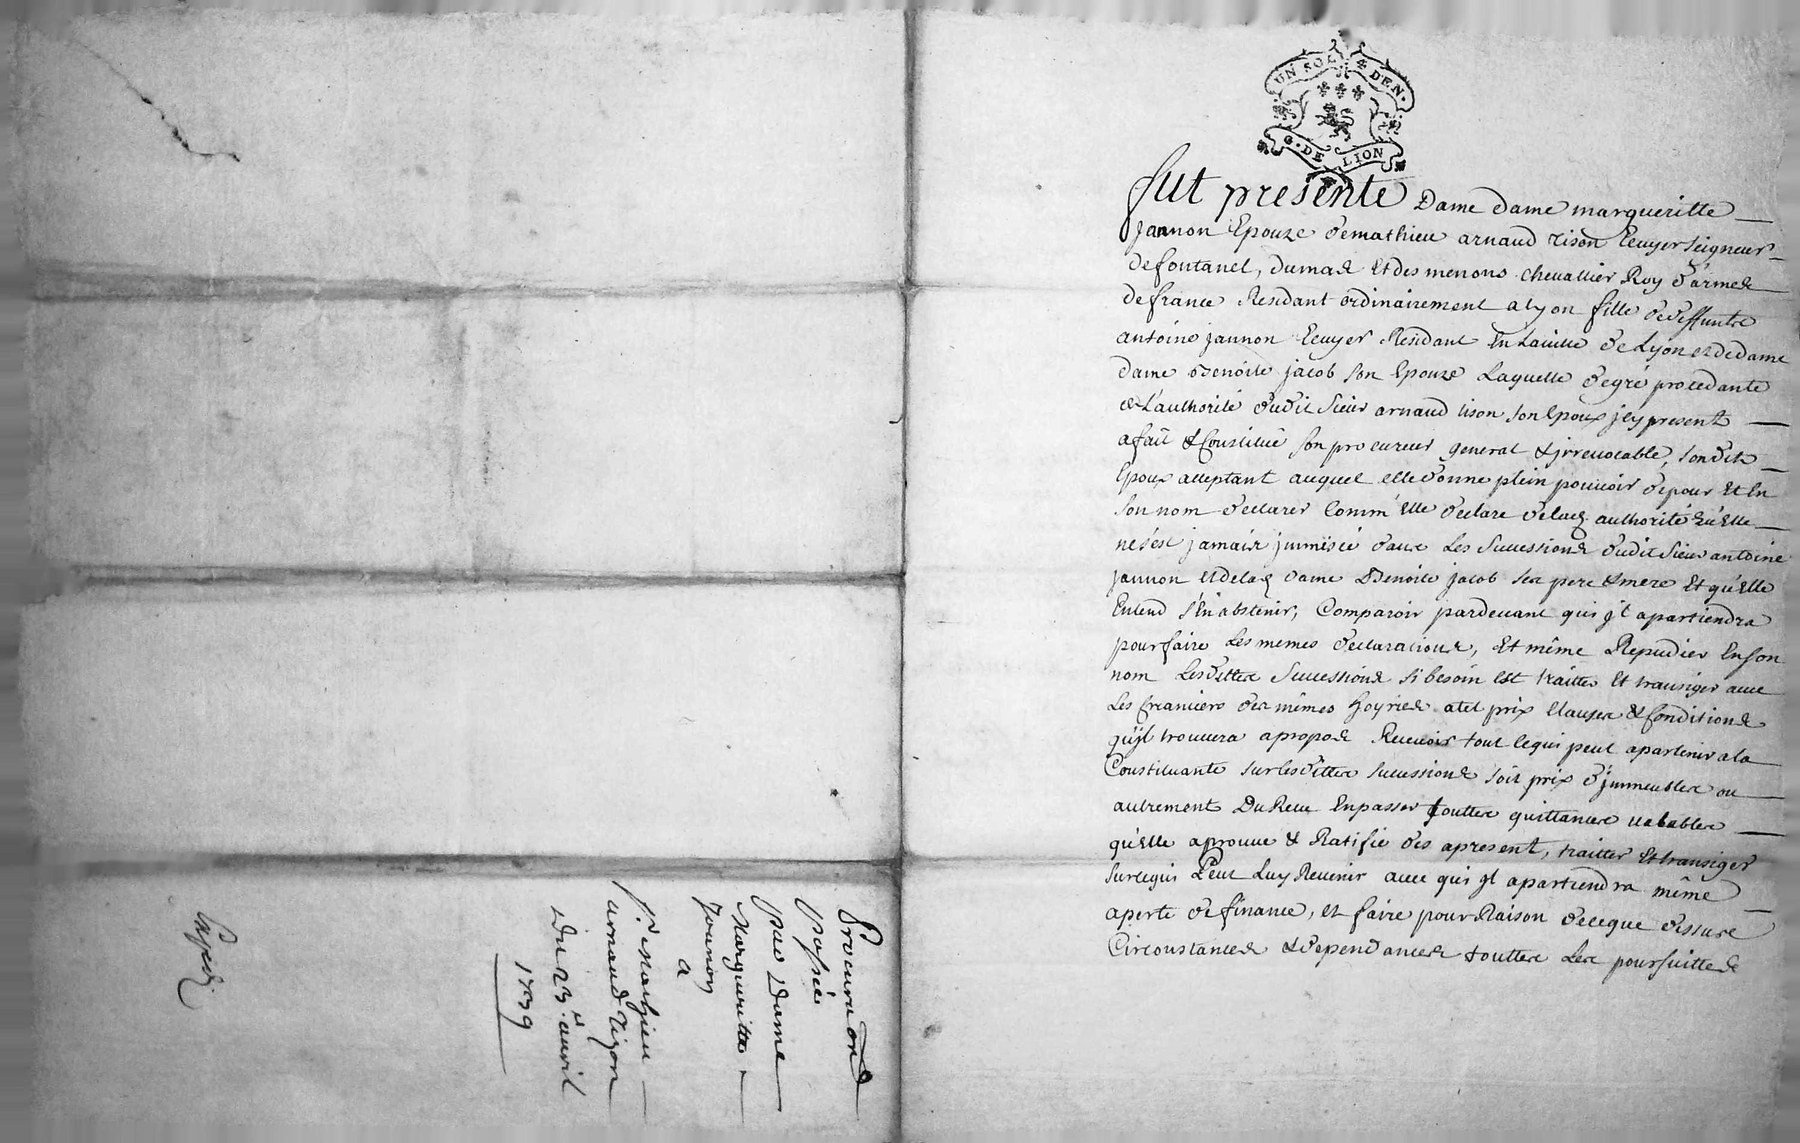 UN SOL 4 DEN.
G. DE LION
fut presente Dame dame margueritte
jannon Epouze de mathieu arnaud tison Ecuyer seigneur
de fontanel, dumas Et des menons chevallier Roy d'armes
de france Residant ordinairement a lyon fille de deffunte
antoine jannon Ecuyer Residant En la ville de Lyon et de dame
dame Benoite jacob son Epouze Laquelle de gré procedante
de L'authorité dudit sieur arnaud tison son Epoux jcy present
a fait & Constitué son procureur general & jrrevocable, sondit
Epoux acceptant auquel elle donne plein pouvoir de pour Et En
son nom declarer Comm'Elle declare de lad authorité qu'Elle
ne s'est jamais jmmiscé dans Les Successions dudit sieur antoine
jannon et de lad dame Benoite jacob ses pere & mere Et qu'Elle
Entend s'En abstenir, Comparoir pardevant qui jl apartiendra
pour faire Les memes declarations, Et même Repudier En son
nom Lesdittes Successions si besoin Est traitter Et transiger avec
Les Creanciers des mêmes hoyries a tel prix Clauses & Conditions
qu'jl trouvera a propos Recevoir tout ce qui peut apartenir a la
Constituante sur lesdittes successions soit prix d'jmmeubles ou
autrement Du Receu En passer touttes quittances valables
qu'Elle aprouve & Ratifie des apresent, traitter Et transiger
sur ce qui Peut Luy Revenir avec qui jl apartiendra même
a perte de finance, et faire pour Raison de ce que dessus
Circonstances & dependances touttes Les poursuittes
Procuration
passée
par Dame
Margueritte
Jannon
a
Sr Mathieu
arnaud Tizon
Du 23e auril
1739